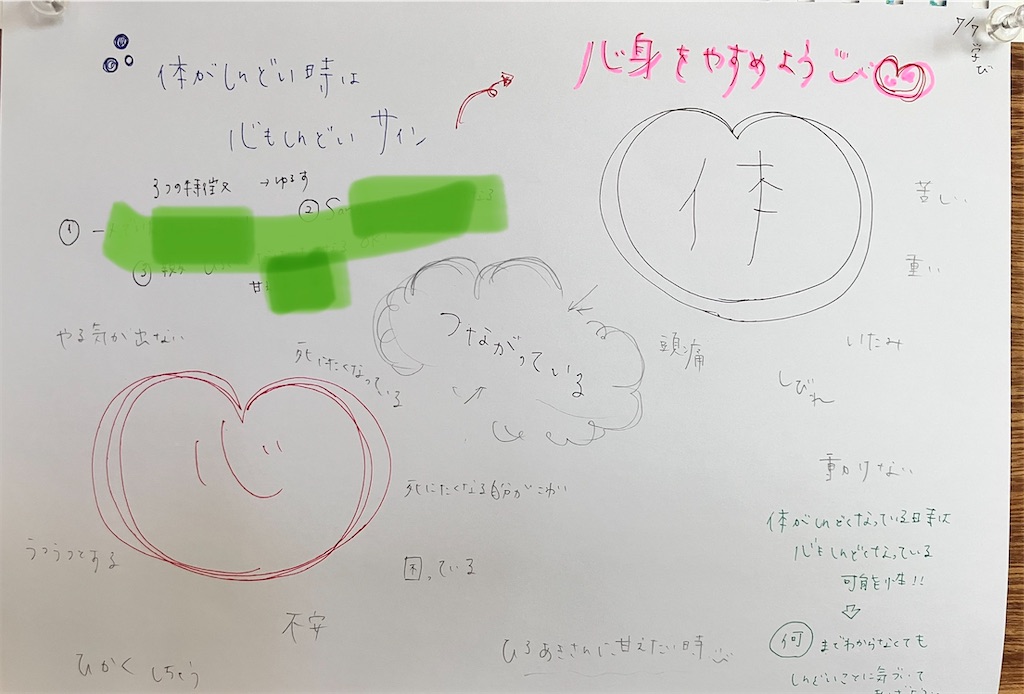 7/7
学び
体がしんどい時は
心もしんどいサイン
心身をやすめよう
3つの特徴 →ゆるす
①
②
③
体
苦しい
重い
いたみ
頭痛
しびれ
動けない
つながっている
やる気が出ない
死にたくなっている
心
死にたくなる自分がこわい
うつうつとする
困っている
不安
ひかくしちゃう
ひろあきさんに甘えたい時
体がしんどくなっている時は
心もしんどくなっている
可能性!!
何までわからなくても
しんどいことに気づいて